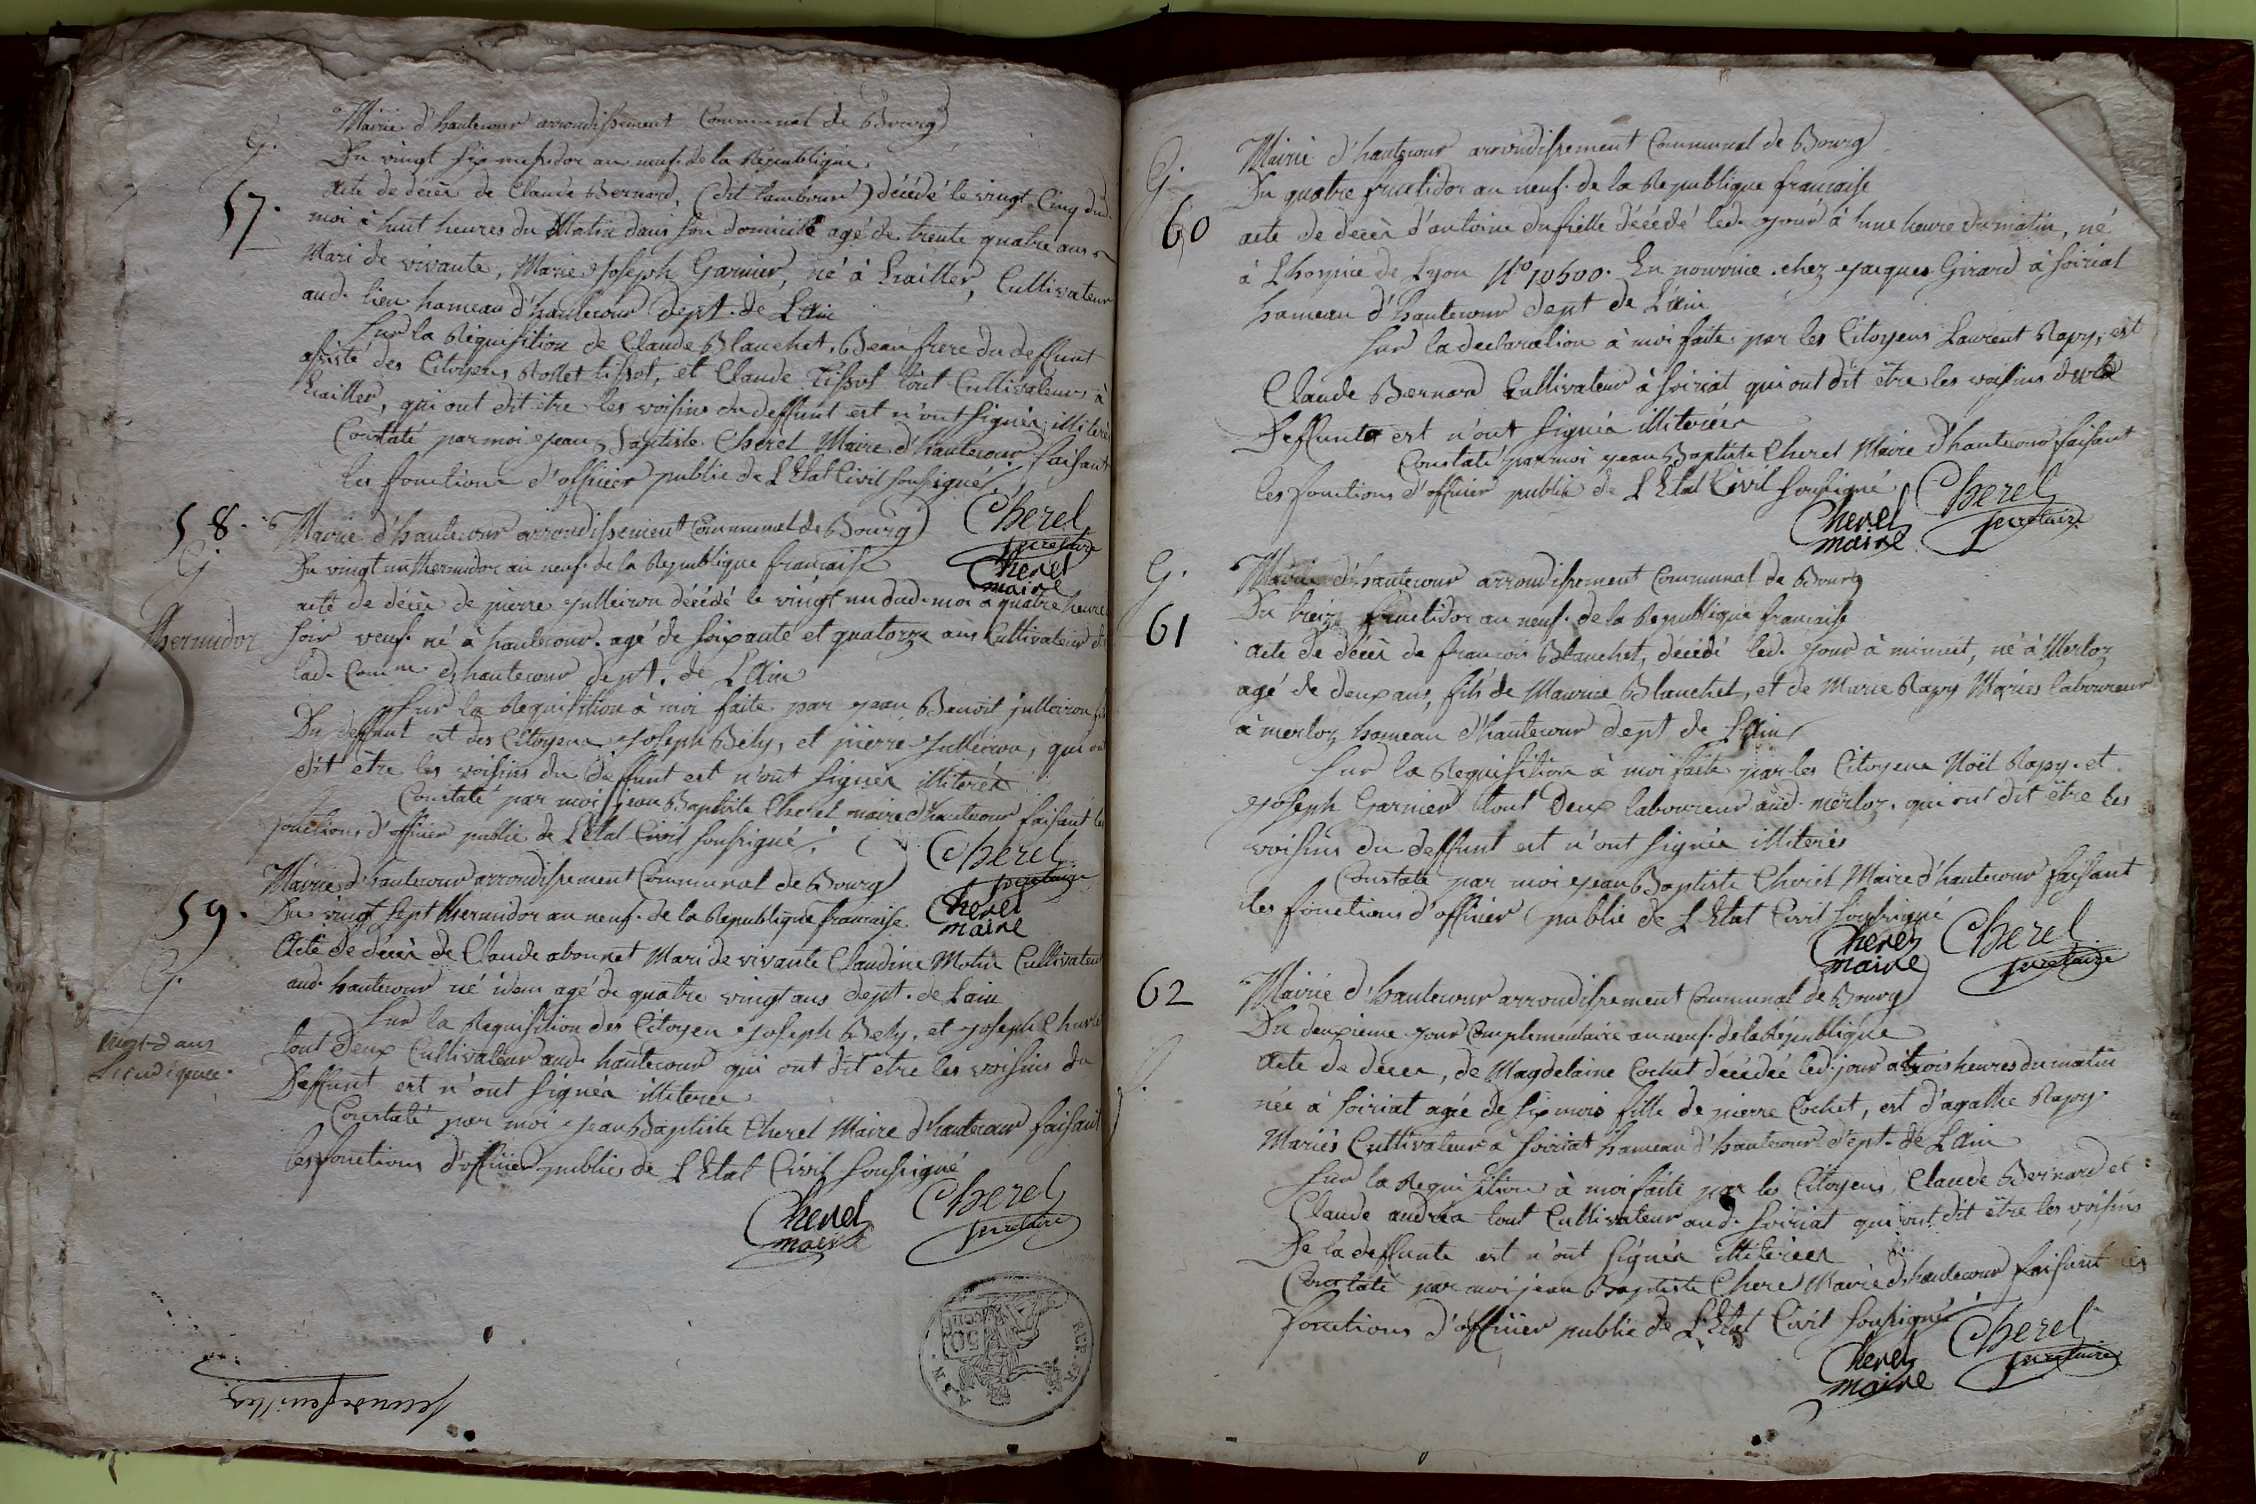 Mairie d'hautecour arrondissement Communal de Bourg
G.
Du vingt six messidor an neuf de la Republique
57.
acte de décès de Claude Bernard, (dit tambour) décédé le vingt Cinq dud.
moi à huit heures du Matin dans son domicile agé de trente quatre ans
Mari de vivante, Marie Joseph Garnier, né à Cultivateur
aud. lieu hameau d'hautecour dept. de L'Ain
Sur la Réquisition de Claude Blanchet, Beau frere du deffunt
assisté des Citoyens Rollet tissot, et Claude Tissot tout Cultivateurs à
qui ont dit être les voisins du deffunt est n'ont signés illiterés
Constaté par moi Jean Baptiste Cherel Maire d'hautecour faisant
les fonctions d'officier public de L'Etat Civil soussigné
Cherel
secretaire
Cherel
maire
58.
G.
Mairie d'hautecour arrondissement Communal de Bourg
Du vingt un thermidor an neuf de la Republique francaise
acte de décès de pierre Julleiron décédé le vingt un dud. moi à quatre heures
Thermidor
soir veuf né à hautecour. agé de soixante et quatorze ans Cultivateur de
lad. Comme. d'hautecour dept. de L'Ain
Sur la Requisition à moi faite par Jean Benoit julleiron fils
Du deffunt et des Citoyens Joseph Bely, et pierre Julleiron, qui ont
dit être les voisins du deffunt est n'ont signés illiterés
Constaté par moi jean Baptiste Cherel maire d'hautecour faisant les
fonctions d'officier public de L'Etat Civil soussigné
Cherel
secretaire
Cherel
maire
59.
G.
Mairie d'hautecour arrondissement Communal de Bourg
Du vingt sept thermidor an neuf de la Republique francaise
Acte de décès de Claude abonnet Mari de vivante Claudine Motin Cultivateur
aud. hautecour né idem agé de quatre vingt ans dept. de Lain
Sur la Requisition des Citoyen Joseph Bely, et Joseph
tout deux Cultivateur aud. hautecour qui ont dit etre les voisins du
Deffunt est n'ont signés illiterés
Constaté par moi Jean Baptiste Cherel Maire d'hautecour faisant
les fonctions d'officier public de L'Etat Civil soussigné
Cherel
maire
Cherel
secretaire
50
G.
60
Mairie d'hautecour arrondissement Communal de Bourg
Du quatre fructidor an neuf de la Republique francaise
acte de décès d'antoine dufiette décédé led. jour à hune heure du matin, né
à Lhospice de Lyon N° 10500. En nourrice chez Jacques Girard à soiriat
hameau d'hautecour dept de L'ain
Sur la declaration à moi faite par les Citoyens Laurent Rapy, est
Claude Bernard Cultivateur à soiriat qui ont dit être les voisins du
Deffunt est n'ont signés illiterés
Constaté par moi Jean Baptiste Cherel Maire d'hautecour faisant
les fonctions d'officier public de L'Etat Civil soussigné
Cherel
maire
Cherel
secretaire
G.
61
Mairie d'hautecour arrondissement Communal de Bourg
Du treize fructidor an neuf de la Republique francaise
Acte de décès de francois Blanchet, décédé led. jour à minuit, né à Merloz
agé de deux ans, fils de Maurice Blanchet, et de Marie Rapy Mariés laboureur
à merloz hameau d'hautecour dept de L'Ain
Sur la Requisition à moi faite par les Citoyens Noël Rapy. et
Joseph Garnier tout Deux laboureur aud. merloz. qui ont dit être les
voisins du deffunt est n'ont signés illiterés
Constaté par moi Jean Baptiste Cherel Maire d'hautecour faisant
les fonctions d'officier public de L'Etat Civil soussigné
Cherel
maire
Cherel
secretaire
62
Mairie d'hautecour arrondissement Communal de Bourg
Du deuxieme jour Complementaire an neuf de la République
Acte de décès, de Magdelaine Cochet décédée led. jour à trois heures du matin
née à soiriat agée de six mois fille de pierre Cochet, est d'agathe Rapy.
Mariés Cultivateur à soiriat hameau d'hautecour dept. de L'Ain
Sur la Requisition à moi faite par les Citoyens Claude Bernard et
Claude andréa tout Cultivateur aud. soiriat qui ont dit être les voisins
De la deffunte est n'ont signés illiterés
Constaté par moi jean Baptiste Cherel Maire d'hautecour faisant les
fonctions d'officier public de L'Etat Civil soussigné
Cherel
maire
Cherel
secretaire